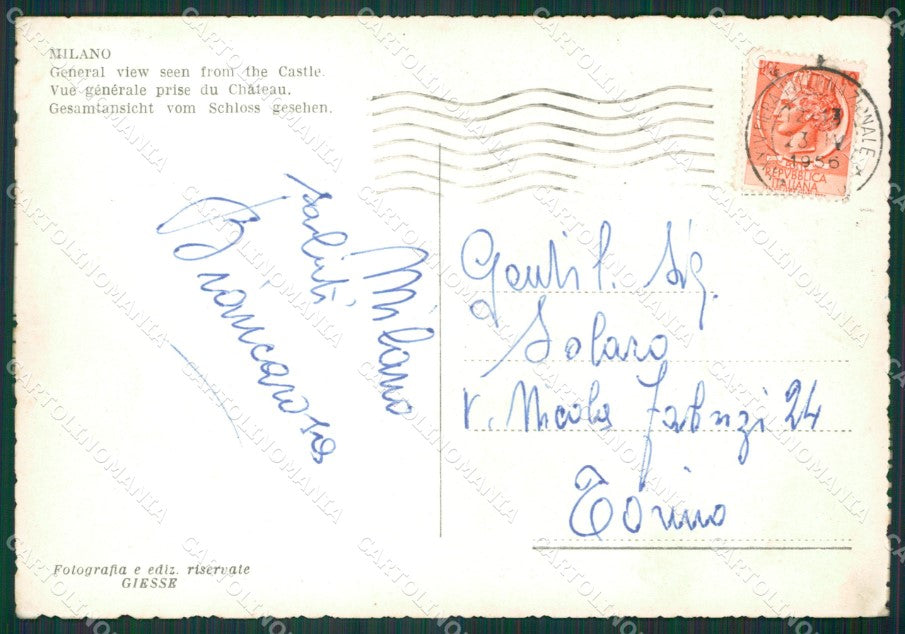 MILANO
General view seen from the Castle.
Vue générale prise du Château.
Gesamtansicht vom Schloss gesehen.
Milano
saluti
Biancarosa
Fotografia e ediz. riservate
GIESSE
1956
REPVBBLICA
ITALIANA
Gentil. Sig.
Solaro
V. Nicola Fabrizi 24
Torino
CARTOLINOMANIA